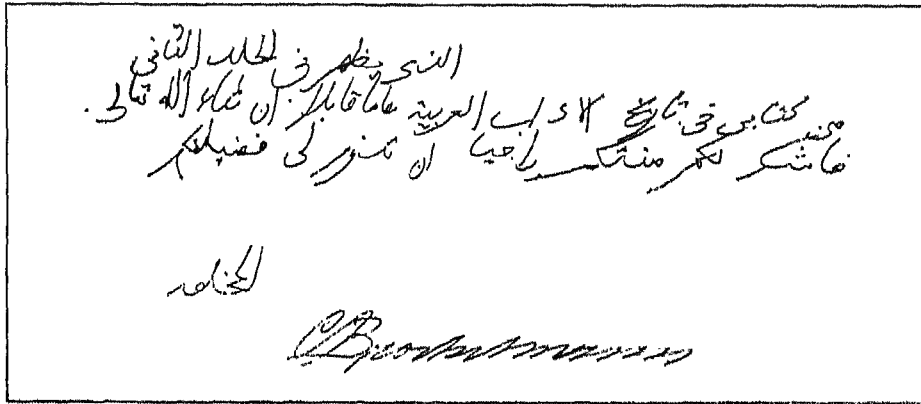 الذى يظهر فى المجلد الثانى
من كتابى فى تاريخ الآداب العربية عاما قابلا ان شاء الله تعالى.
فاشكر لكم منتكم راجيا ان لى فضيلتكم
المخلص
C Brockelmann